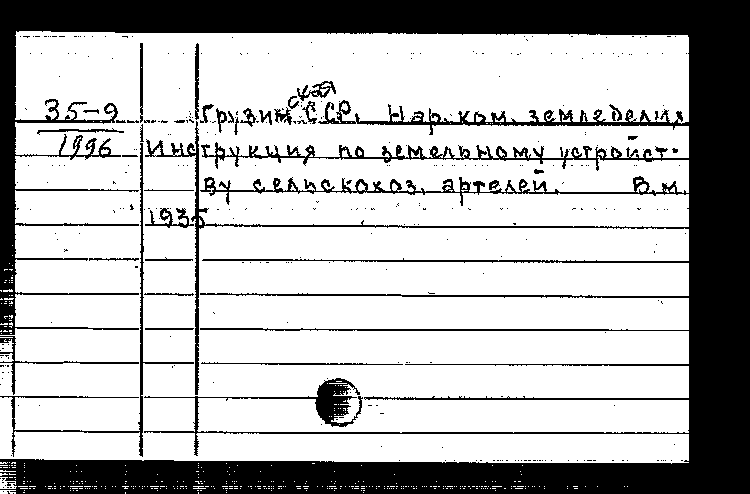 35-9
1996
Грузинская ССР. Нар. ком. земледелия
Инструкция по земельному устройст-
ву сельскохоз. артелей. В.м.
1935